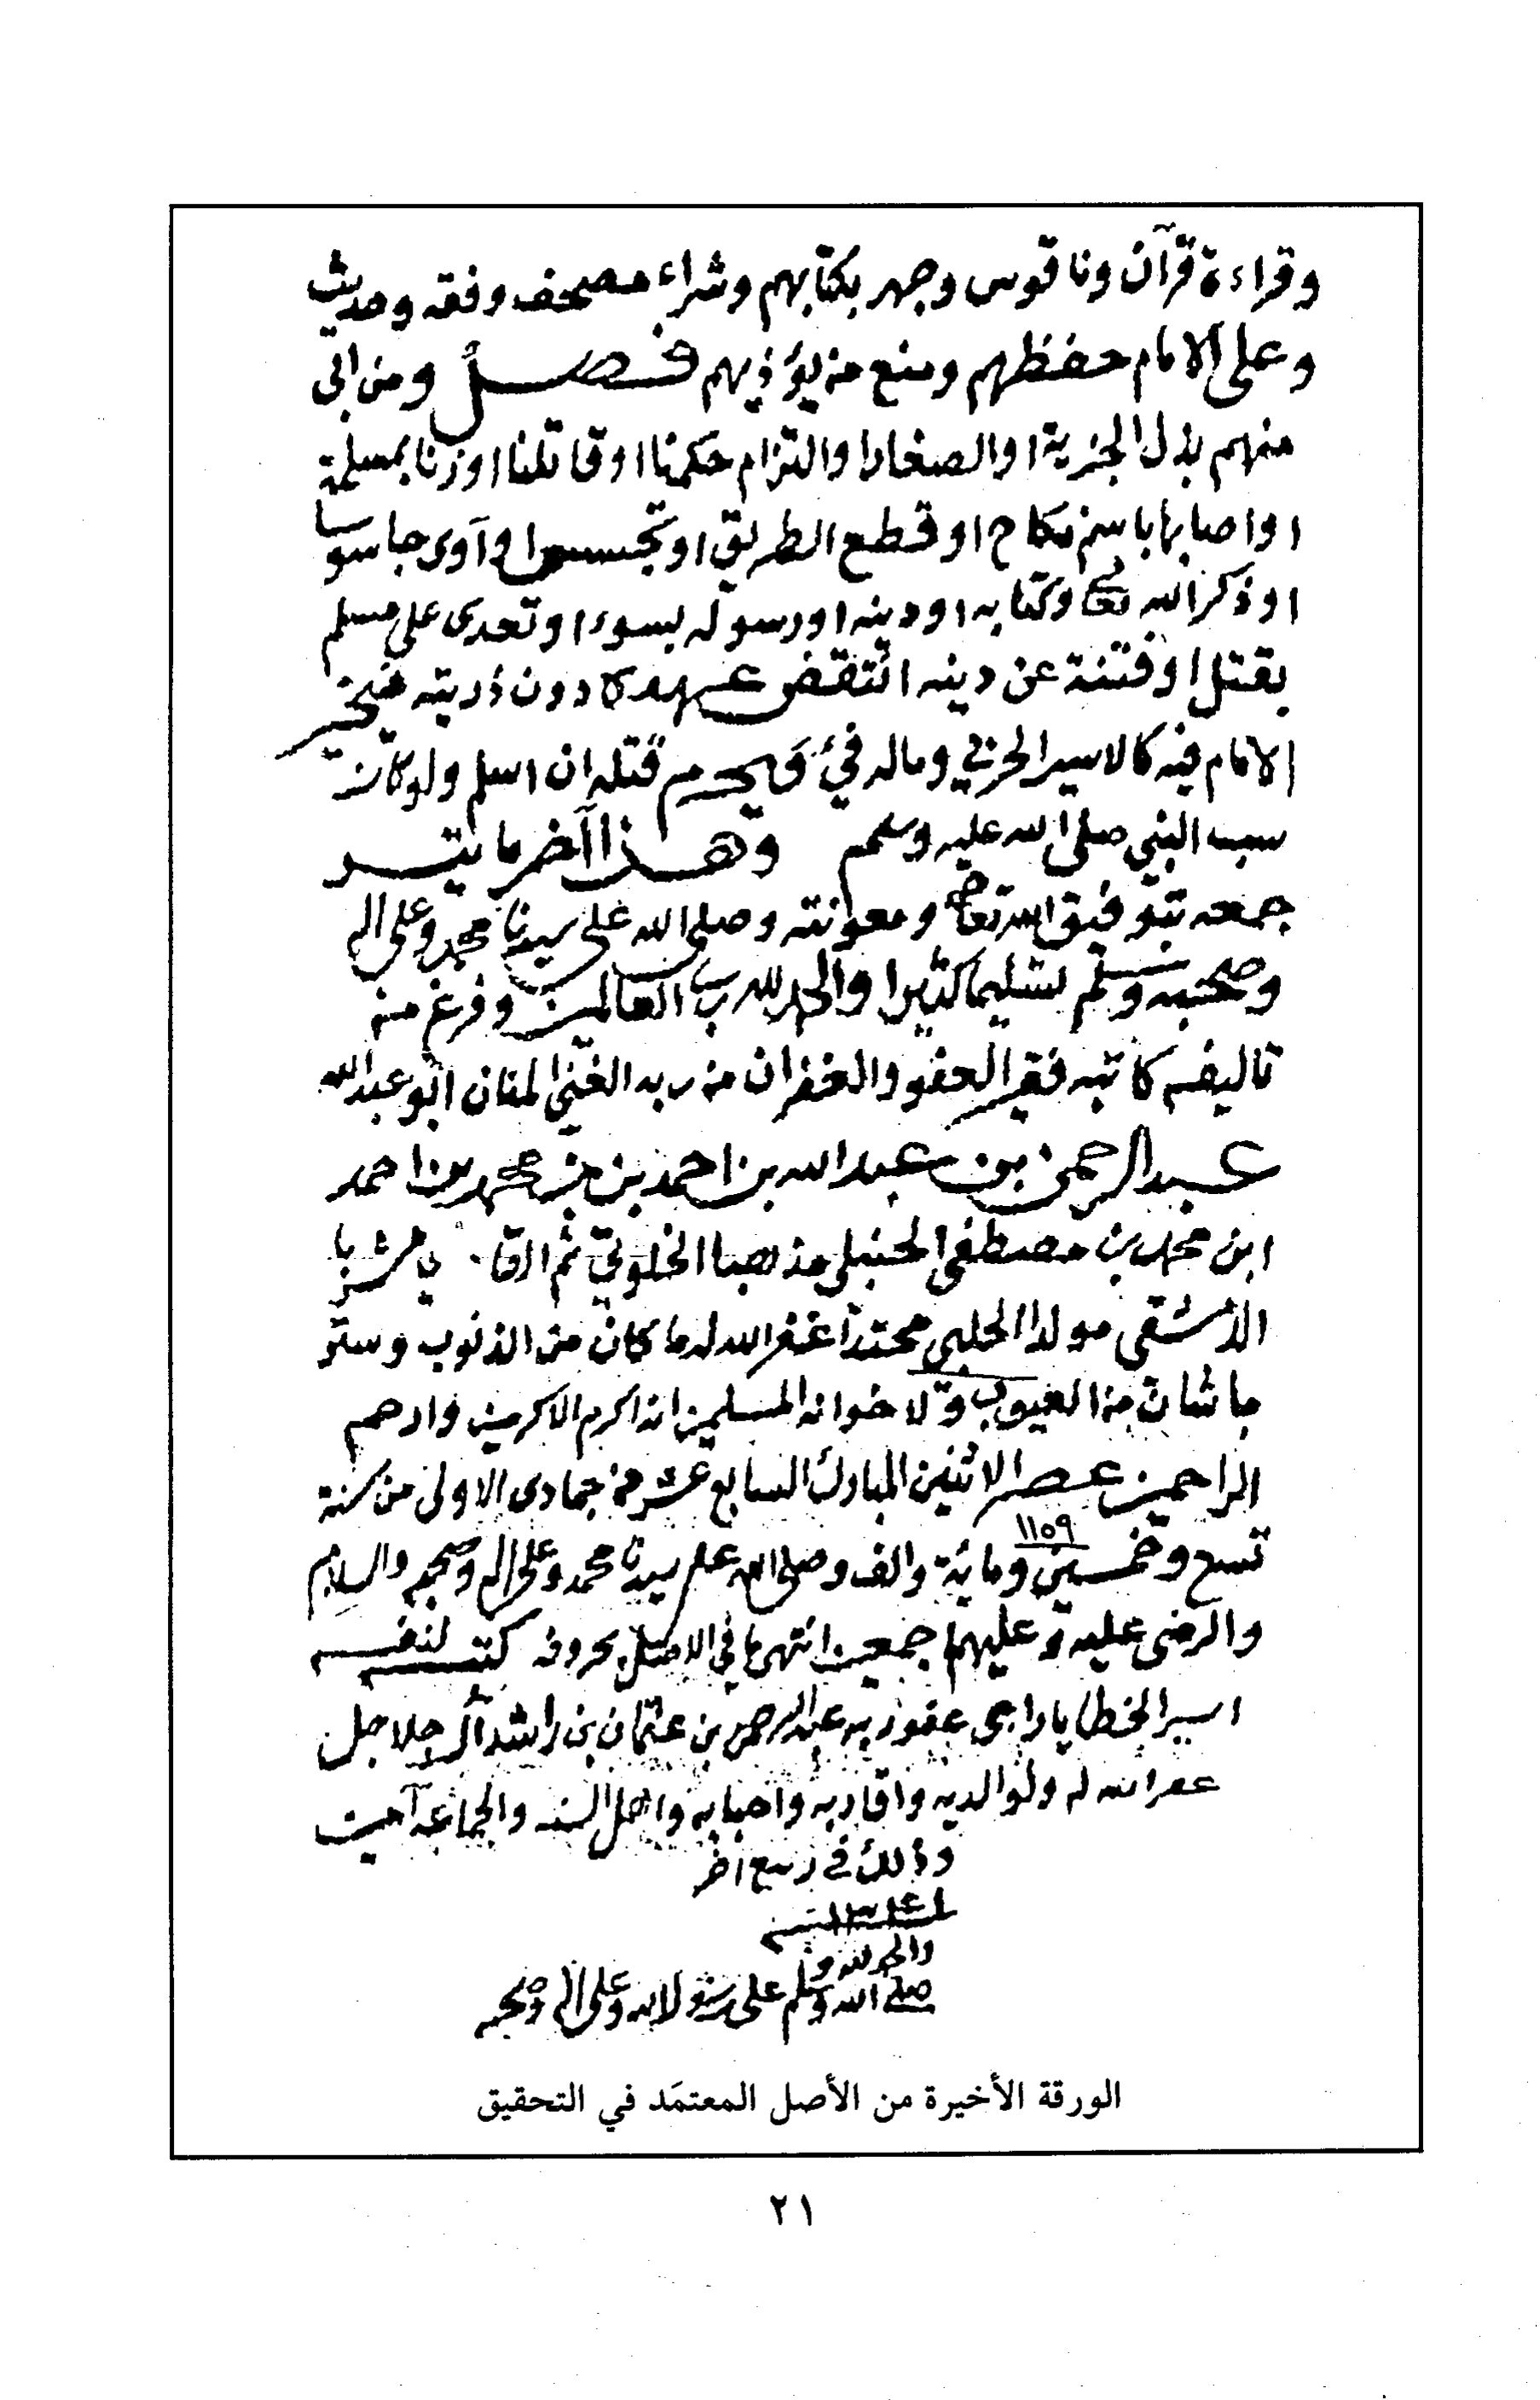 وقراءة قرآن وناقوس وجهر بكتابهم وشراء مصحف وفقه وحديث
وعلى الامام حفظهم ومنع من يؤذيهم فصل ومن ابى
منهم بذل الجزية او الصغار او التزام حكمنا او قاتلنا او زنا بمسلمة
او اصابها باسم نكاح او قطع الطريق او تجسس او آوى جاسوسا
او ذكر الله تعا وكتابه او دينه او رسوله بسوء او تعدى على مسلم
بقتل او فتنة عن دينه انتقض عهده دون ذريته فيخير
الامام فيه كالاسير الحربي وماله فيئ ويحرم قتله ان اسلم ولو كان
سب النبي صلى الله عليه وسلم وهذا آخر ما يتسر
جمعه بتوفيق الله تعا ومعونته وصلى الله على سيدنا محمد وعلى اله
وصحبه وسلم تسليما كثيرا والحمد لله رب العالمين وفرغ منه
تاليفه كاتبه فقير العفو والغفران من ربه الغني المنان ابو عبد الله
عبد الرحمن بن عبد الله بن احمد بن محمد بن احمد
ابن محمد بن مصطفى الحنبلي مذهبا الخلوتي ثم القا ي مشربا
الدمشقي مولدا الحلبي محتدا غفر الله له ما كان من الذنوب وستر
ما شان من العيوب ولاخوانه المسلمين انه اكرم الاكرمين وارحم
الراحمين عصر الاثنين المبارك السابع عشر من جمادى الاولى من سنة
١١٥٩
تسع وخمسين وماية والف وصلى الله على سيدنا محمد وعلى اله وصحبه والسلام
والرضى عليه وعليهم اجمعين انتهى ما في الاصل بحروفه كتبه لنفسه
اسير الخطايا راجى عفو ربه عبد الرحمن بن عثمان بن راشد آل جلاجل
غفر الله له ولوالديه واقاربه واحبابه واهل السنه والجماعه آمين
وذلك في ربيع اخر
والحمد لله و
صلى الله وسلم على رسول الله وعلى اله وصحبه
الورقة الأخيرة من الأصل المعتمَد في التحقيق
٢١